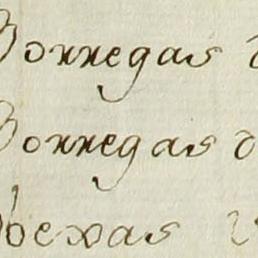 Borregas d
Borregas d
Obexas